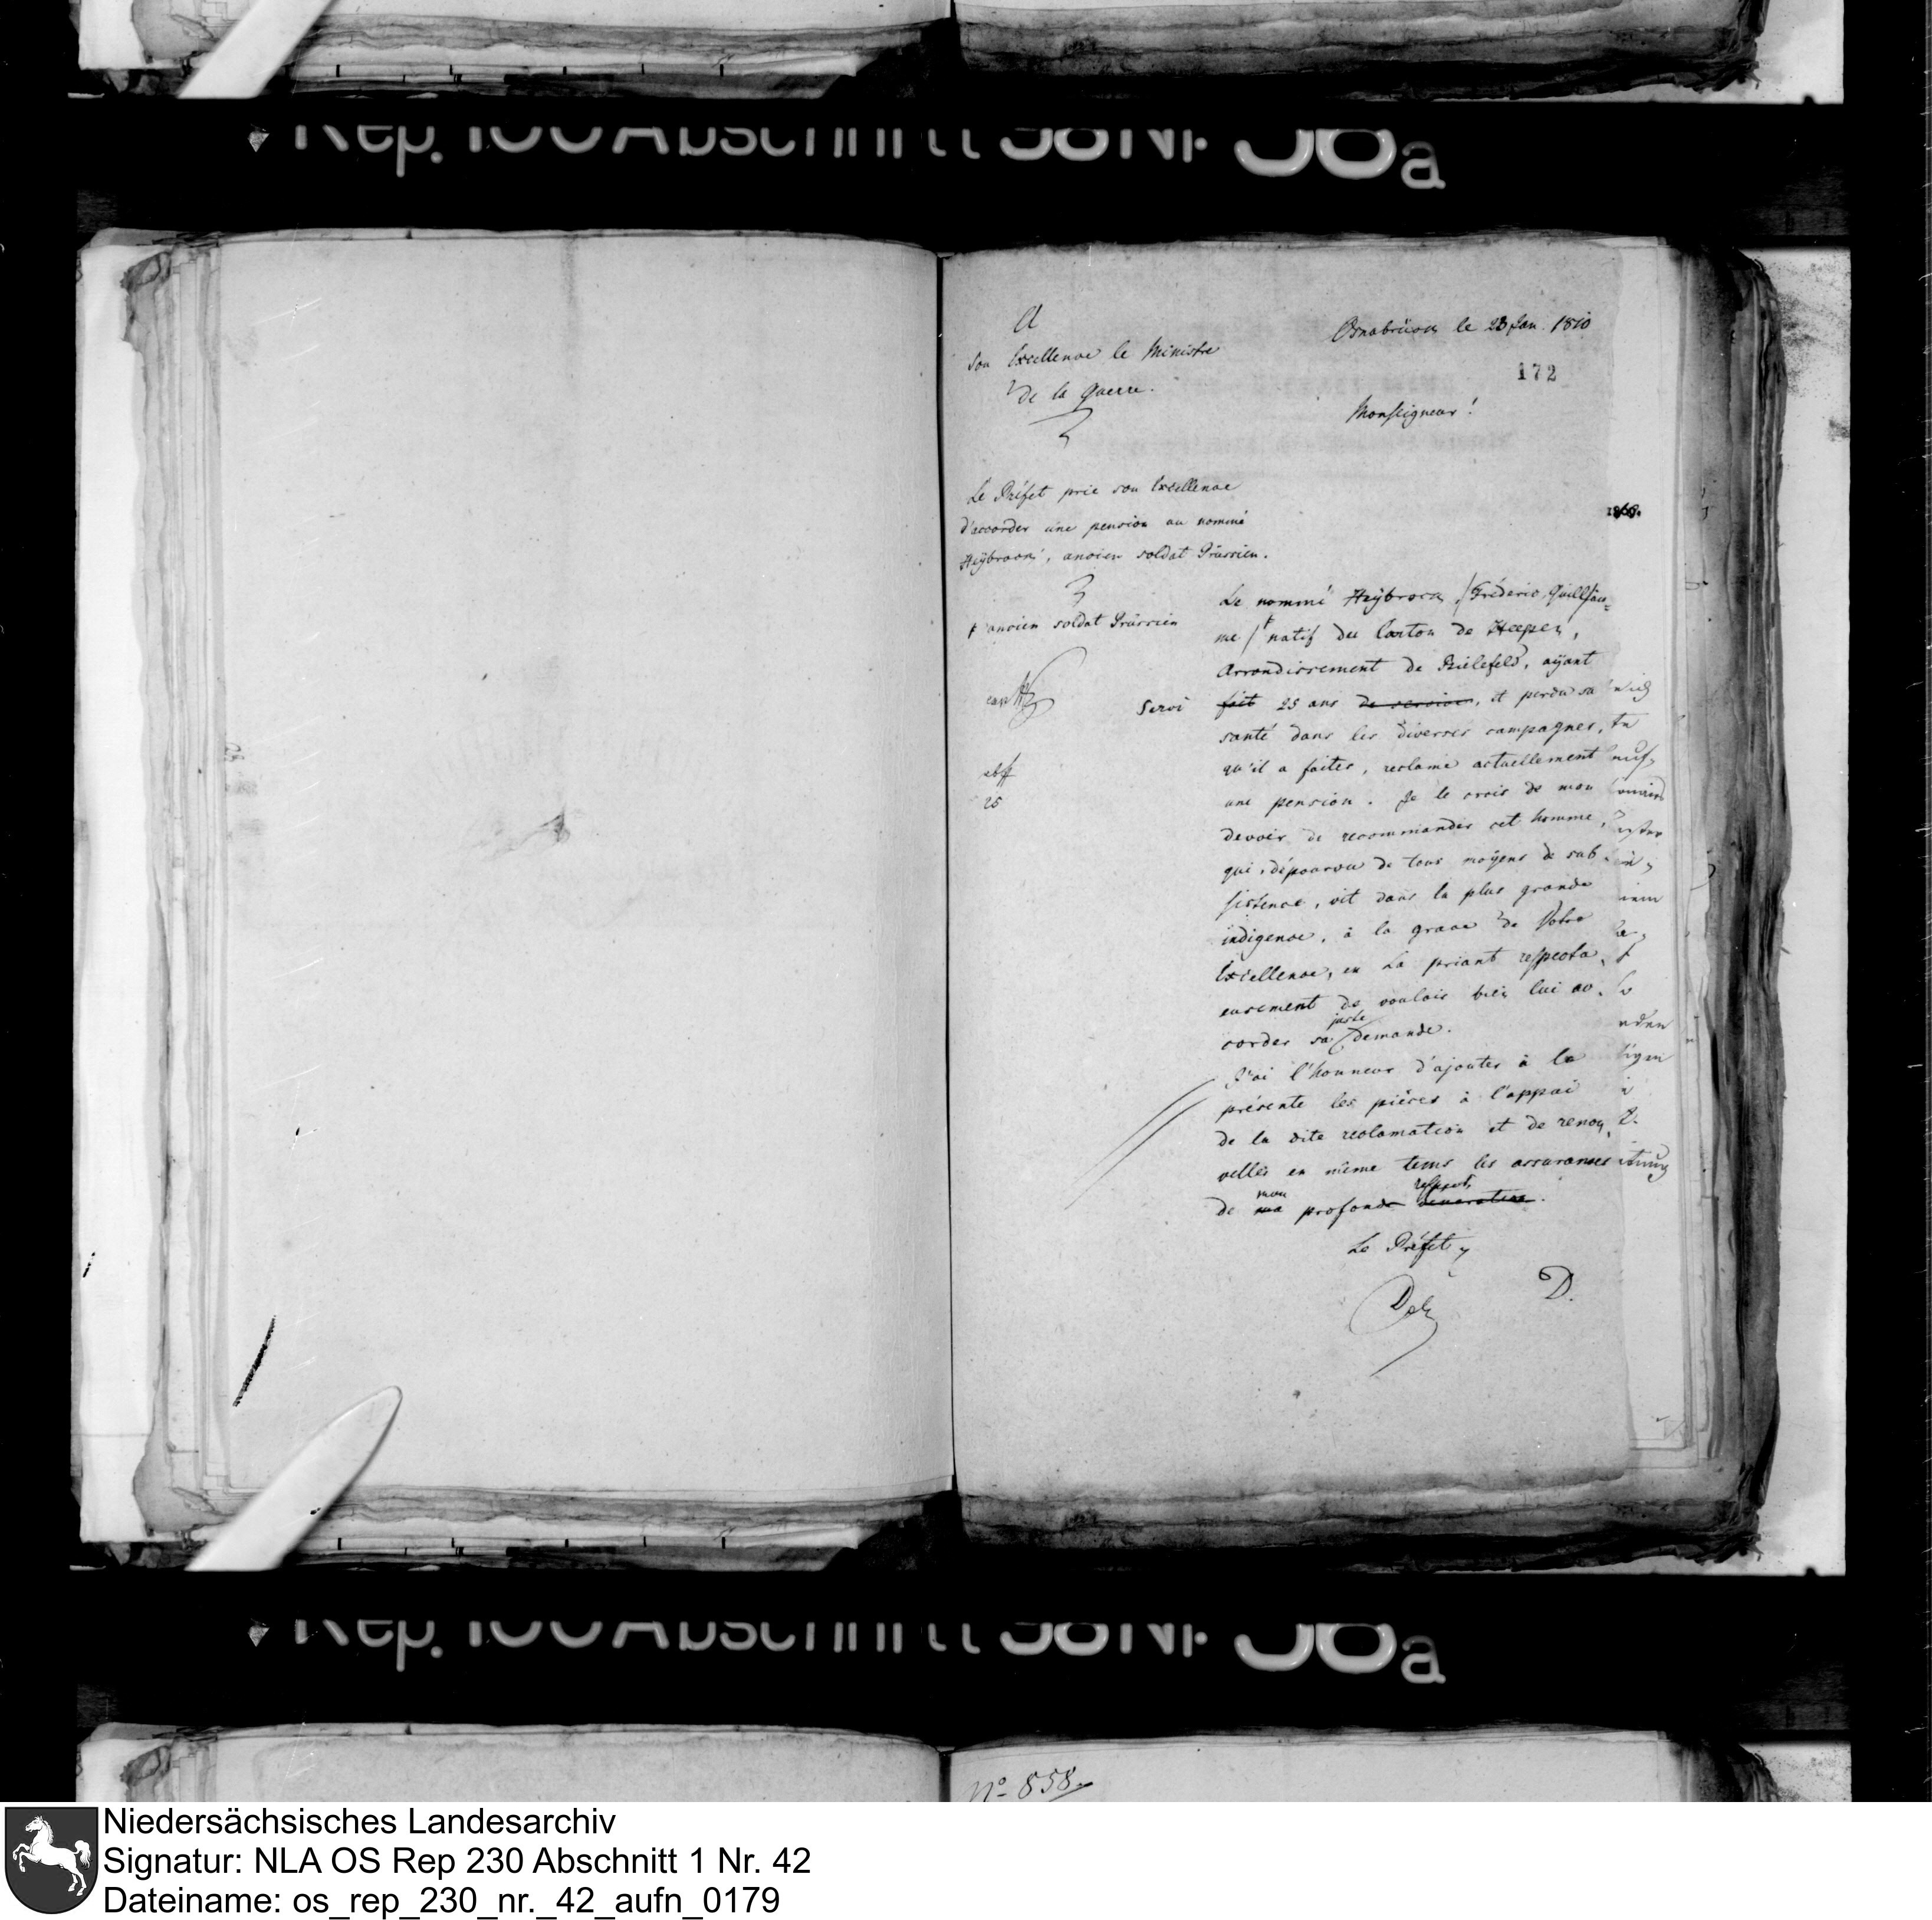 Rep. 100 Abschnitt 58 Nr. 38a
A
Son Excellence le Ministre
de la Guerre.
Osnabrück le 23 Jan. 1810
172
Monseigneur!
Le Préfet prie son Excellence
d'accorder une pension au nommé
Heÿbrock, ancien soldat Prussien.
Le nommé Heÿbrock /Fréderic Guillau-
me/ natif du Canton de Heepen,
ancien soldat Prussien
Arrondissement de Bielefeld, aÿant
servi fait 25 ans de service, et perdu sa
santé dans les diverses campagnes,
qu'il a faites, reclame actuellement
une pension. Je le crois de mon
devoir de recommander cet homme,
qui, dépourvu de tous moÿens de sub-
sistence, vit dans la plus grande
indigence, à la grace de Votre
Excellence, en La priant respectu-
eusement de vouloir bien lui ac-
corder sa juste demande.
J'ai l'honneur d'ajouter à la
présente les piéces à l'appui
de la dite reclamation et de renou-
veller en même tems les assurances
de ma mon profonde veneration respect.
Le Préfet
D.
Rep. 100 Abschnitt 58 Nr. 38a
No 858.
Niedersächsisches Landesarchiv
Signatur: NLA OS Rep 230 Abschnitt 1 Nr. 42
Dateiname: os_rep_230_nr._42_aufn_0179